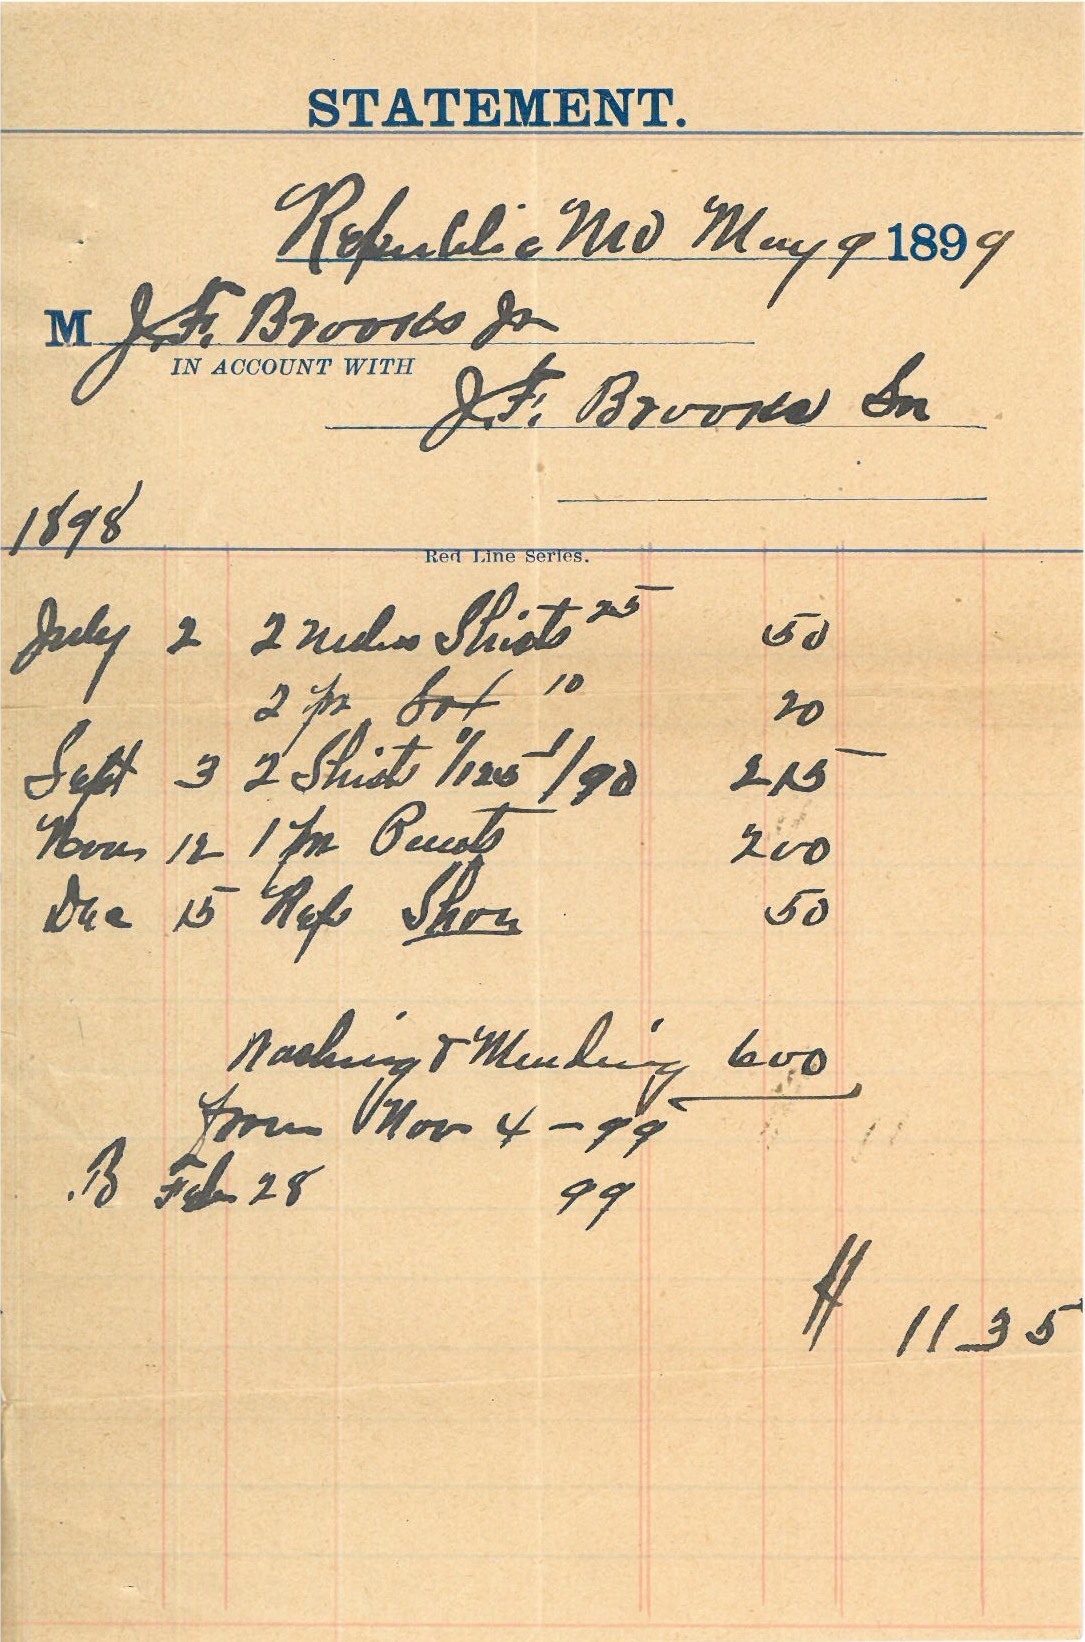 STATEMENT.
Republic Mo May 9 1899
M J.F. Brooks Jr
IN ACCOUNT WITH
J.F. Brooks Sr
1898
Red Line Series.
July 2 2 Shirts 25 50
2 pr Sox 10 20
Sept 3 2 Shirts 1/125 1/90 215
Nov 12 1 pr Pants 200
Dec 15 Rep Shoes 50
Washing & Mending 600
from Nov 4 - 99
Feb 28 99
11 35